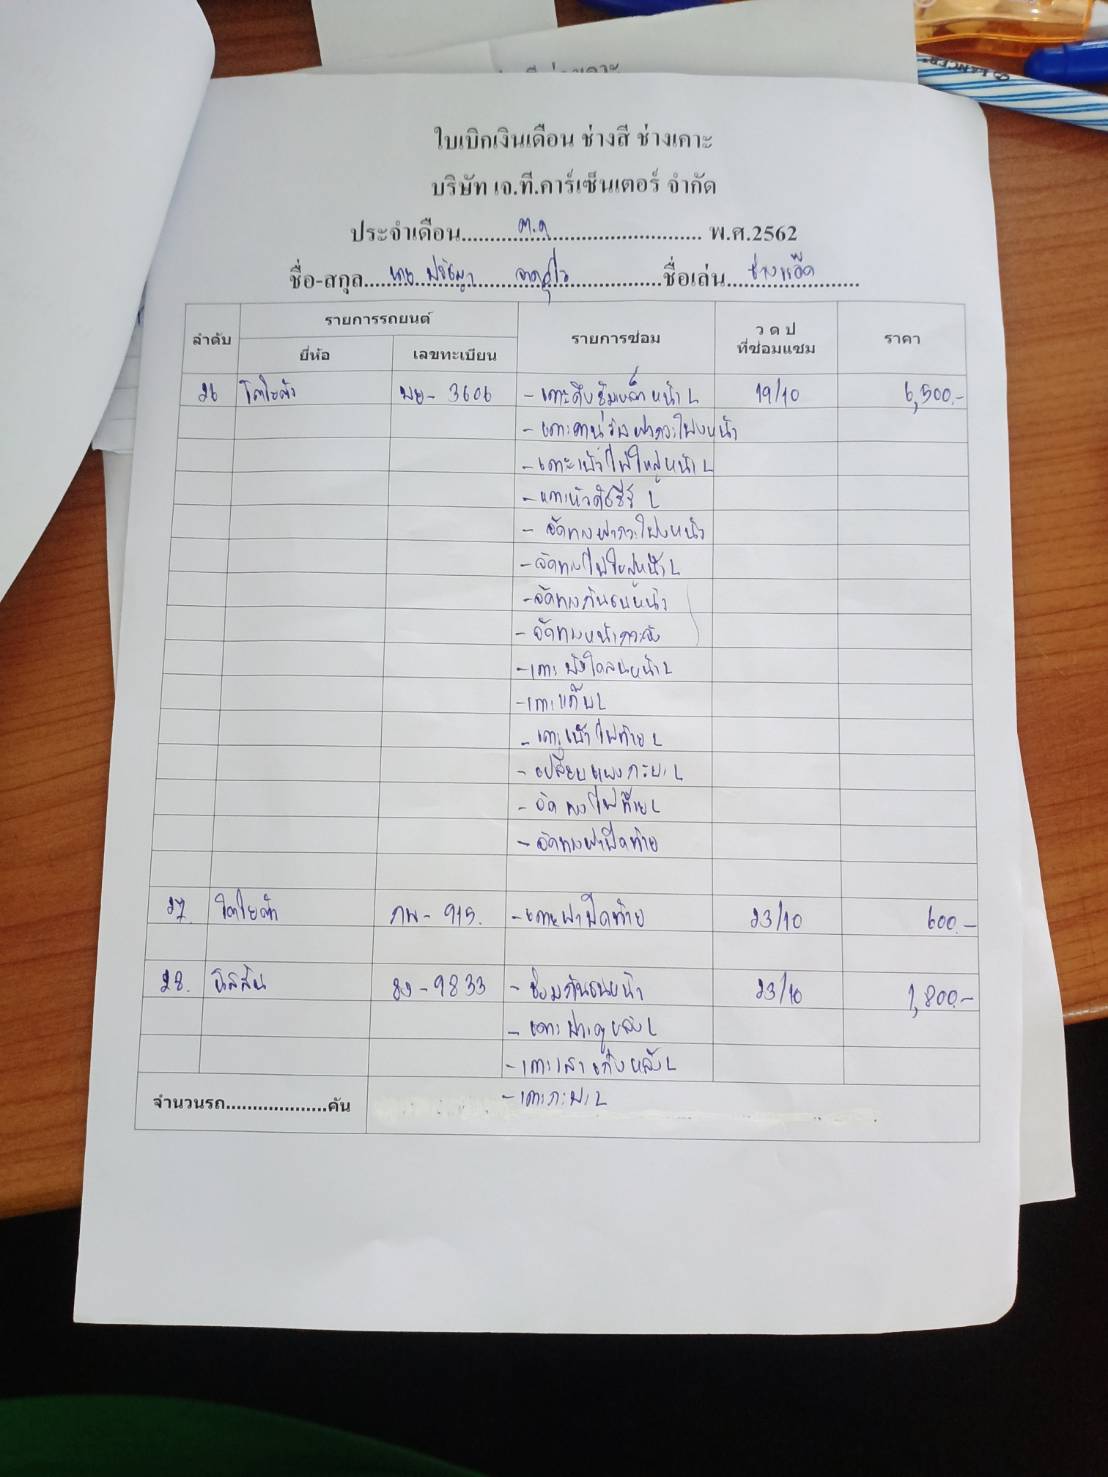 ใบเบิกเงินเดือน ช่างสี ช่างเคาะ
บริษัท เจ.ที.คาร์เซ็นเตอร์ จำกัด
ประจำเดือน ต.ค พ.ศ.2562
ชื่อ-สกุล นาย ชื่อเล่น ช่างแอ๊ด
ลำดับ รายการรถยนต์ รายการซ่อม ว ด ป ที่ซ่อมแซม ราคา
ยี่ห้อ เลขทะเบียน
26 โตโยต้า - 3606 - เคาะดึงซุ้มเหล็กหน้า L 19/10 6,500.-
- เคาะคานรับฝากระโปรงหน้า
- เคาะเบ้าไฟใหญ่หน้า L
- เคาะหัวคัชซี L
- จัดทรงฝากระโปรงหน้า
- จัดทรงไฟใหญ่หน้า L
- จัดทรงกันชนหน้า
- จัดทรงหน้ากระจัง
- เคาะบังโคลนหน้า L
- เคาะแก้ม L
- เคาะเบ้าไฟท้าย L
- เปลี่ยนแผงกระบะ L
- จัดทรงไฟท้าย L
- จัดทรงฝาปิดท้าย
27 โตโยต้า กพ - 915. - เคาะฝาปิดท้าย 23/10 600.-
28. นิสสัน - 9833 - ซ่อมกันชนหน้า 23/10 1,800.-
- เคาะประตูหลัง L
- เคาะเสาเก๋งหลัง L
จำนวนรถ คัน - เคาะกระบะ L